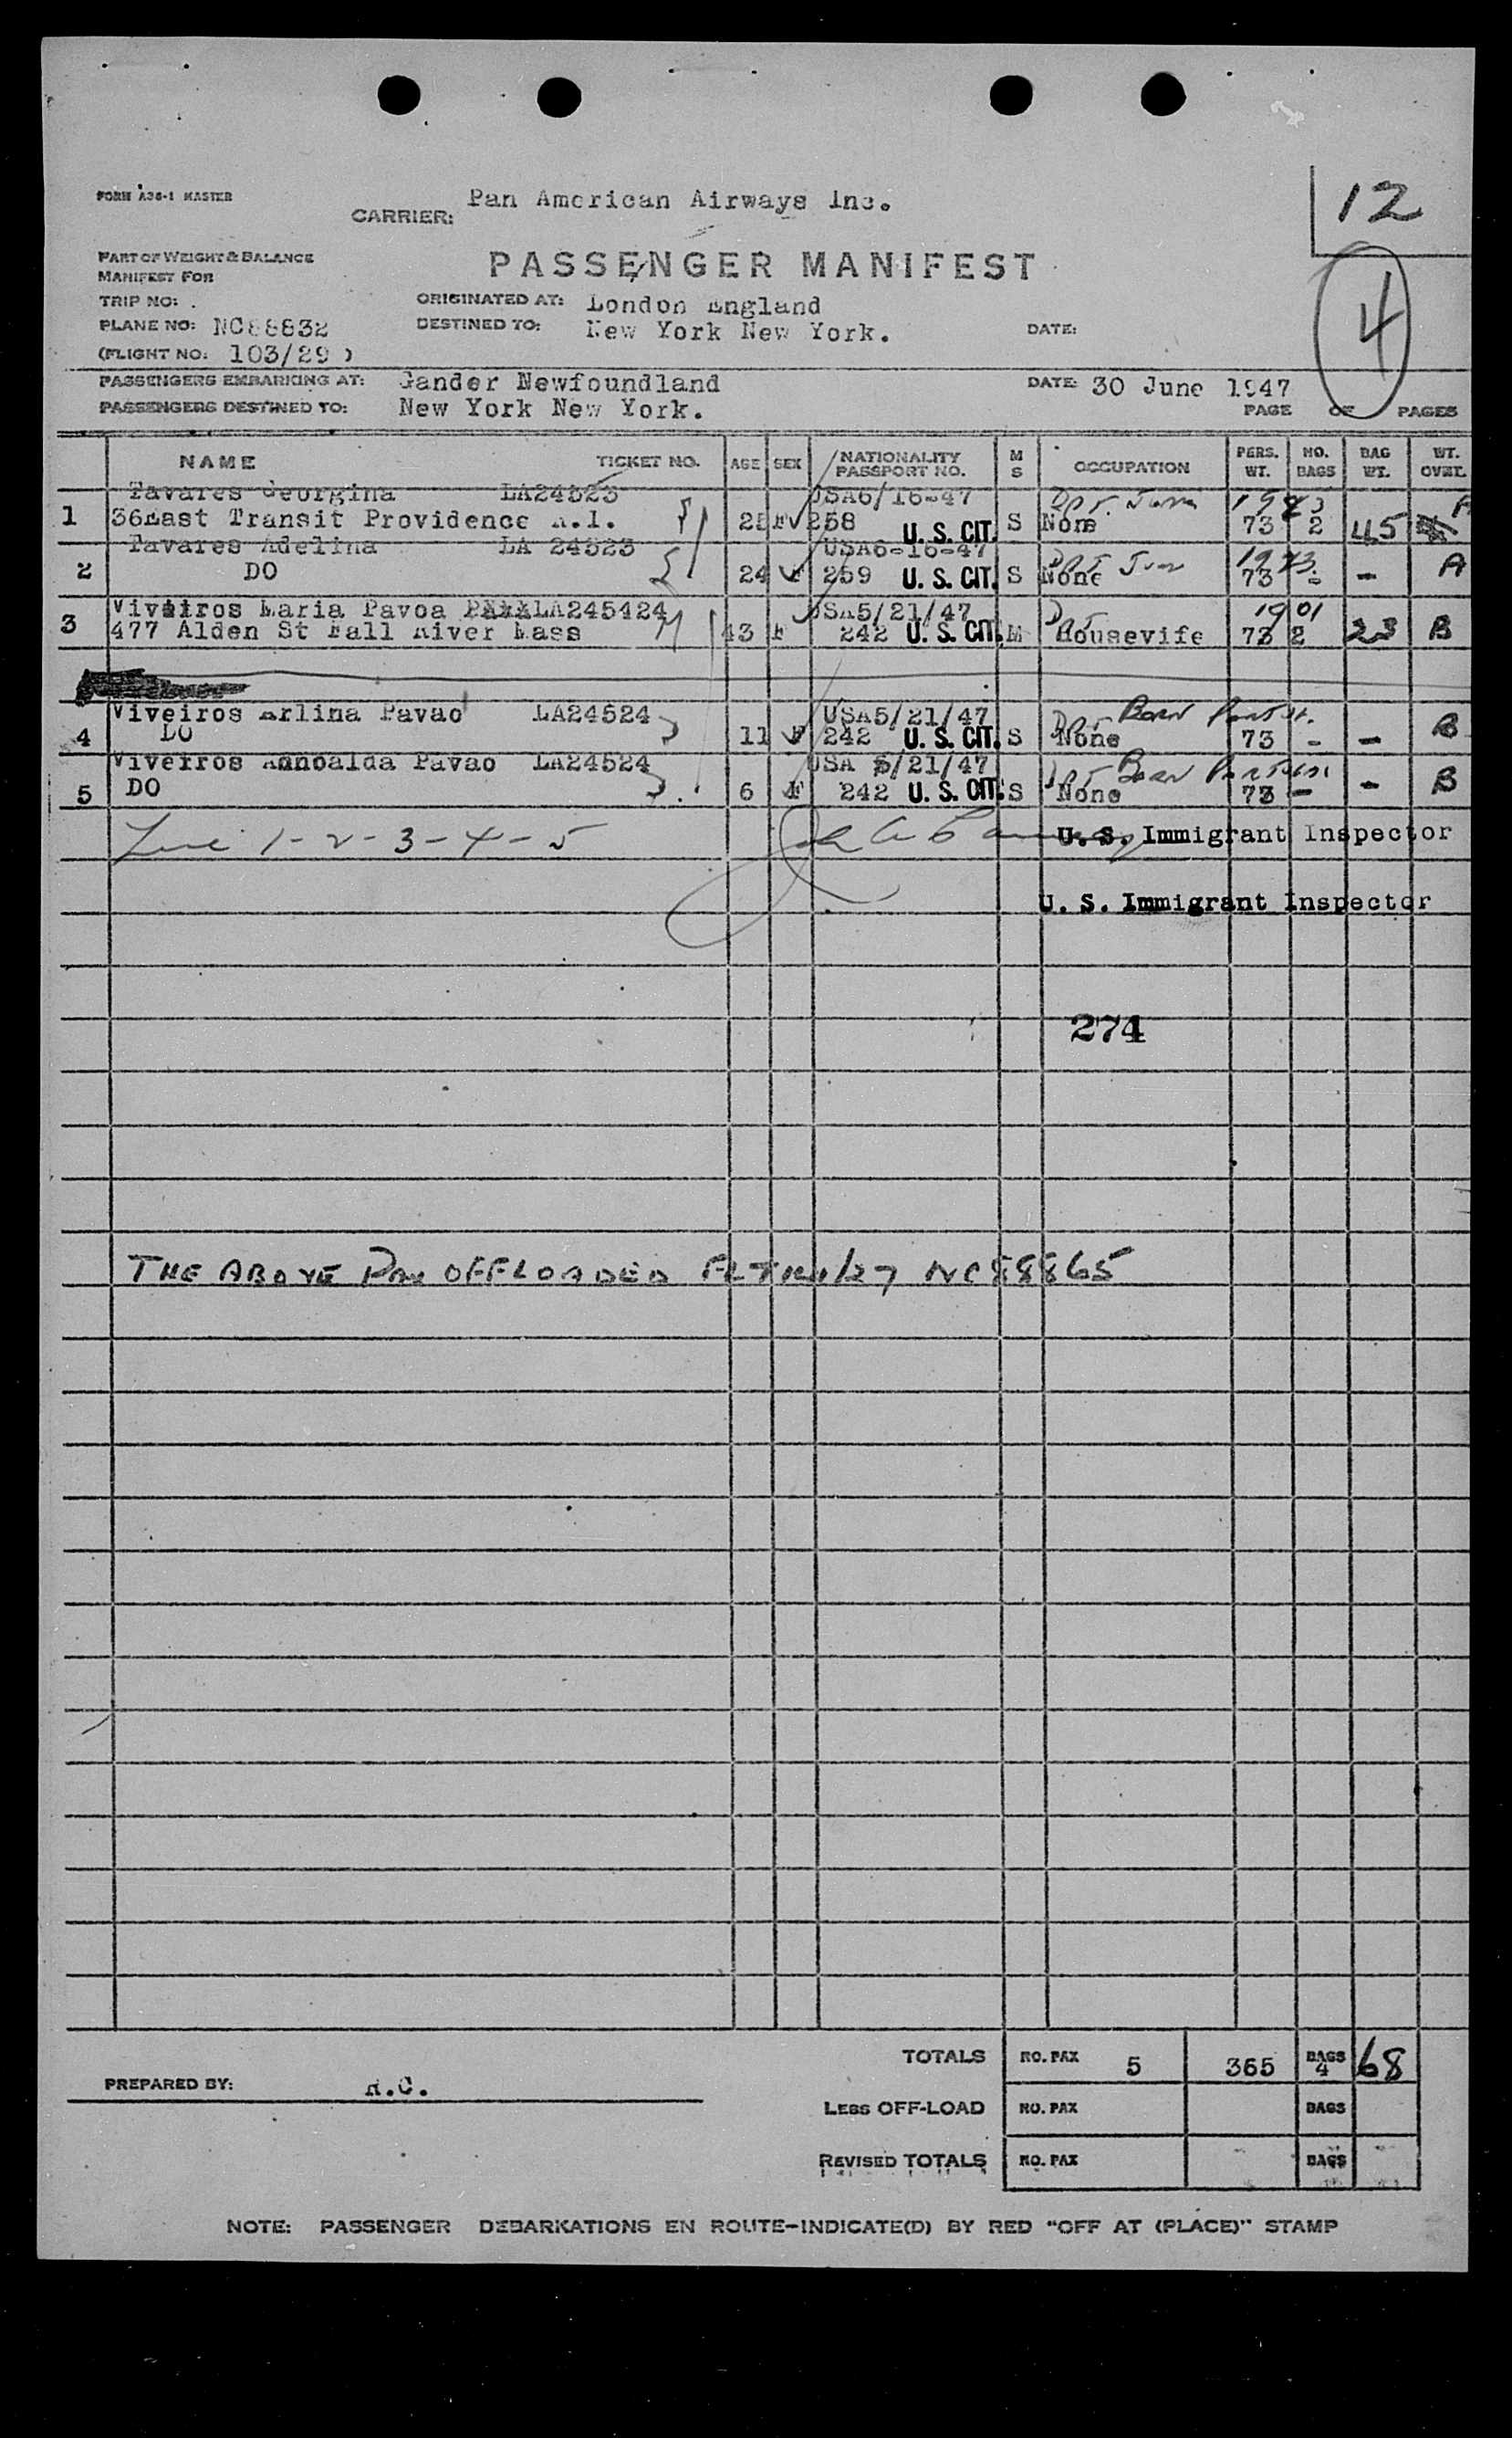 12
FORM A36-1 MASTER
CARRIER: Pan American Airways Inc.
PART OF WEIGHT & BALANCE
MANIFEST FOR
PASSENGER MANIFEST
4
TRIP NO:
ORIGINATED AT: London England
PLANE NO: NC88832
DESTINED TO: New York New York.
DATE:
(FLIGHT NO: 103/29 )
PASSENGERS EMBARKING AT: Gander Newfoundland
DATE: 30 June 1947
PASSENGERS DESTINED TO: New York New York.
PAGE OF PAGES
NAME TICKET NO. AGE SEX NATIONALITY PASSPORT NO. M S OCCUPATION PERS. WT. NO. BAGS BAG WT. WT. OVRT.
Tavares Georgina LA24523 USA6/16-47 19 A
1 36East Transit Providence R.I. F 258 U. S. CIT. S None 73 2 45
Tavares Adelina LA 24523 USA6-16-47 A
2 DO 24 F 259 U. S. CIT. S None 73 - -
Viveiros Maria Pavoa LA245424 USA5/21/47 1901
3 477 Alden St Fall River Mass 43 F 242 U. S. CIT. M Housewife 73 2 23 B
Viveiros Arlina Pavao LA24524 USA5/21/47 Born
4 DO 11 F 242 U. S. CIT. S None 73 - - B
Viveiros Pavao LA24524 USA 5/21/47 Born
5 DO 6 F 242 U. S. CIT. S None 73 - - B
Line 1-2-3-4-5
U. S. Immigrant Inspector
U. S. Immigrant Inspector
274
THE ABOVE PAX OFFLOADED NC88865
TOTALS NO. PAX 5 365 BAGS 4 68
PREPARED BY: R.C.
LESS OFF-LOAD NO. PAX BAGS
REVISED TOTALS NO. PAX BAGS
NOTE: PASSENGER DEBARKATIONS EN ROUTE-INDICATE(D) BY RED "OFF AT (PLACE)" STAMP